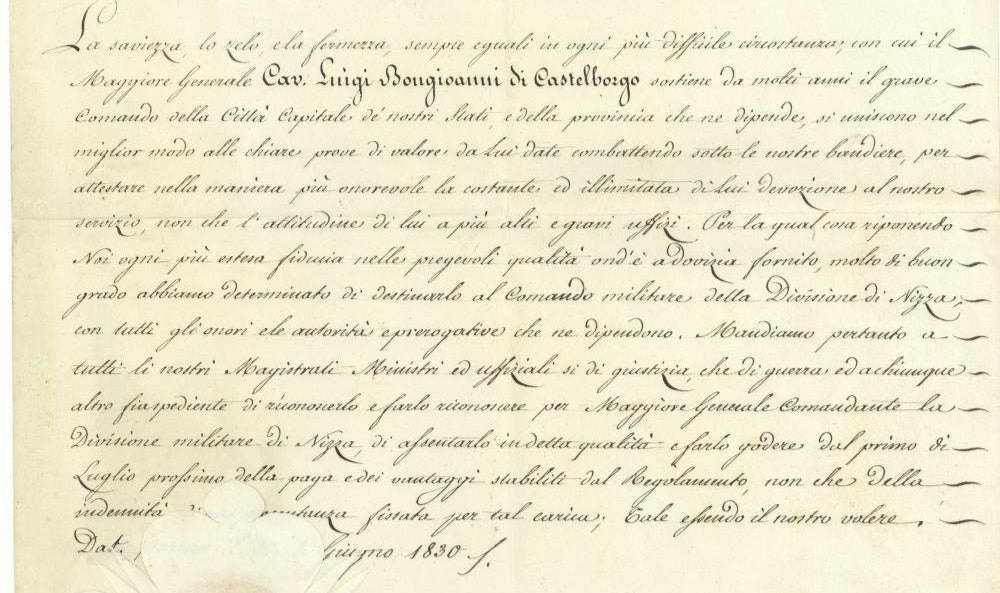 La saviezza, lo zelo, e la fermezza, sempre eguali in ogni più difficile circostanza, con cui il
Maggiore Generale Cav. Luigi Bongioanni di Castelborgo sostiene da molti anni il grave
Comando della Città Capitale de' nostri Stati, e della provincia che ne dipende, si uniscono nel
miglior modo alle chiare prove di valore da Lui date combattendo sotto le nostre bandiere, per
attestare nella maniera più onorevole la costante ed illimitata di Lui devozione al nostro
servizio, non che l'attitudine di lui a più alti e gravi uffizi. Per la qual cosa riponendo
Noi ogni più estesa fiducia nelle pregevoli qualità ond'è a dovizia fornito, molto di buon
grado abbiamo determinato di destinarlo al Comando militare della Divisione di Nizza,
con tutti gli onori e le autorità e prerogative che ne dipendono. Mandiamo pertanto a
tutti li nostri Magistrati Ministri ed uffiziali si di giustizia, che di guerra ed a chiunque
altro fia spediente di riconoscerlo e farlo riconoscere per Maggiore Generale Comandante la
Divisione militare di Nizza, di assentarlo in detta qualità e farlo godere dal primo di
Luglio prossimo della paga e dei vantaggi stabiliti dal Regolamento, non che della
indennità fissata per tal carica; Tale essendo il nostro volere.
Dat. Giugno 1830